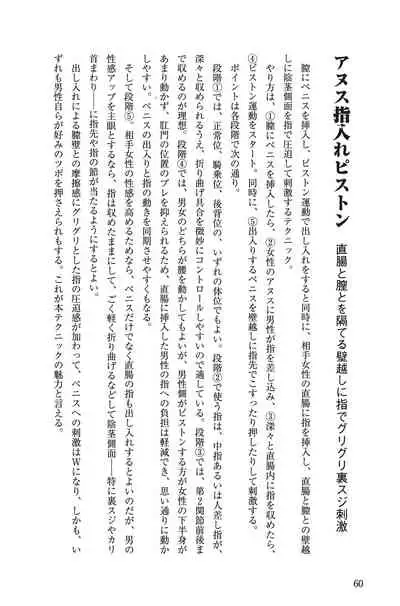 アヌス指入れピストン 直腸と膣とを隔てる壁越しに指でグリグリ裏スジ刺激
膣にペニスを挿入し、ピストン運動で出し入れをすると同時に、相手女性の直腸に指を挿入し、直腸と膣との壁越
しに陰茎側面を指で圧迫して刺激するテクニック。
やり方は、①膣にペニスを挿入したら、②女性のアヌスに男性が指を差し込み、③深々と直腸内に指を収めたら、
④ピストン運動をスタート。同時に、⑤出入りするペニスを壁越しに指先でこすったり押したりして刺激する。
ポイントは各段階で次の通り。
段階①では、正常位、騎乗位、後背位の、いずれの体位でもよい。段階②で使う指は、中指あるいは人差し指が、
深々と収められるうえ、折り曲げ具合を微妙にコントロールしやすいので適している。段階③では、第2関節前後ま
で収めるのが理想。段階④では、男女のどちらが腰を動かしてもよいが、男性側がピストンする方が女性の下半身が
あまり動かず、肛門の位置のブレを抑えられるため、直腸に挿入した男性の指への負担は軽減でき、思い通りに動か
しやすい。ペニスの出入りと指の動きを同期させやすくもなる。
そして段階⑤。相手女性の性感を高めるためなら、ペニスだけでなく直腸の指も出し入れするとよいのだが、男の
性感アップを主眼とするなら、指は収めたままにして、ごく軽く折り曲げるなどして陰茎側面――特に裏スジやカリ
首まわり――に指先や指の節が当たるようにするとよい。
出し入れによる膣壁との摩擦感にグリグリとした指の圧迫感が加わって、ペニスへの刺激はWになり、しかも、い
ずれも男性自らが好みのツボを押さえられもする。これが本テクニックの魅力と言える。
60